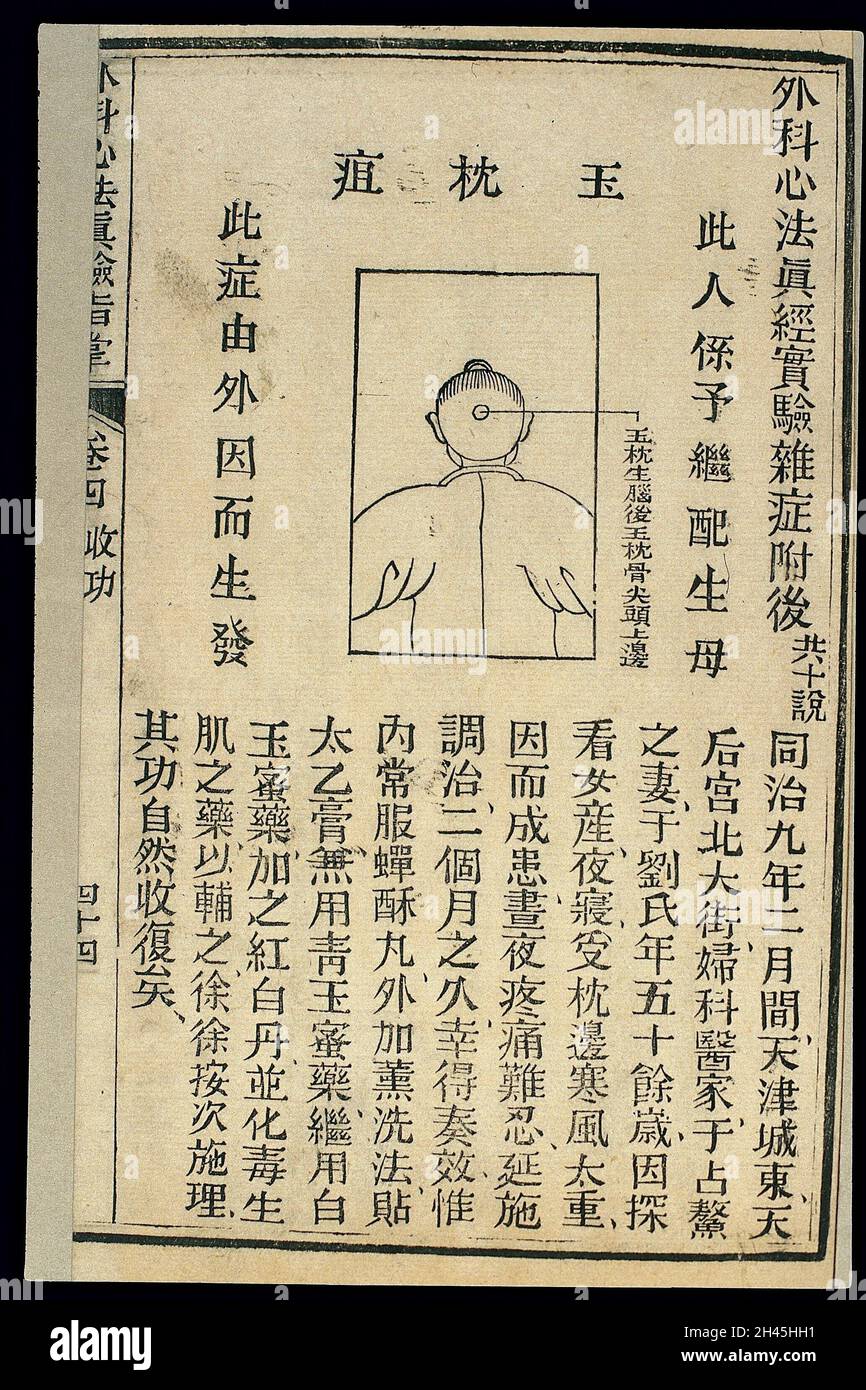 外科心法眞經實驗雜症附後 共十說
玉枕疽
此人係予繼配生母
玉枕生腦後玉枕骨尖頭上邊
此症由外因而生發
同治九年二月間、天津城東、天
后宮北大街、婦科醫家、于占鰲
之妻、于劉氏年五十餘歲、因探
看女產、夜寢、受枕邊寒風太重、
因而成患、晝夜疼痛難忍、延施
調治、二個月之久、幸得奏效、惟
內常服蟬酥丸、外加薰洗法、貼
太乙膏、無用靑玉蜜藥、繼用白
玉蜜藥、加之紅白丹、並化毒生
肌之藥、以輔之、徐徐按次施理、
其功自然收復矣、
外科心法眞驗指掌
卷四 收功
四十四
alamy
Image ID: 2H45HH1
www.alamy.com